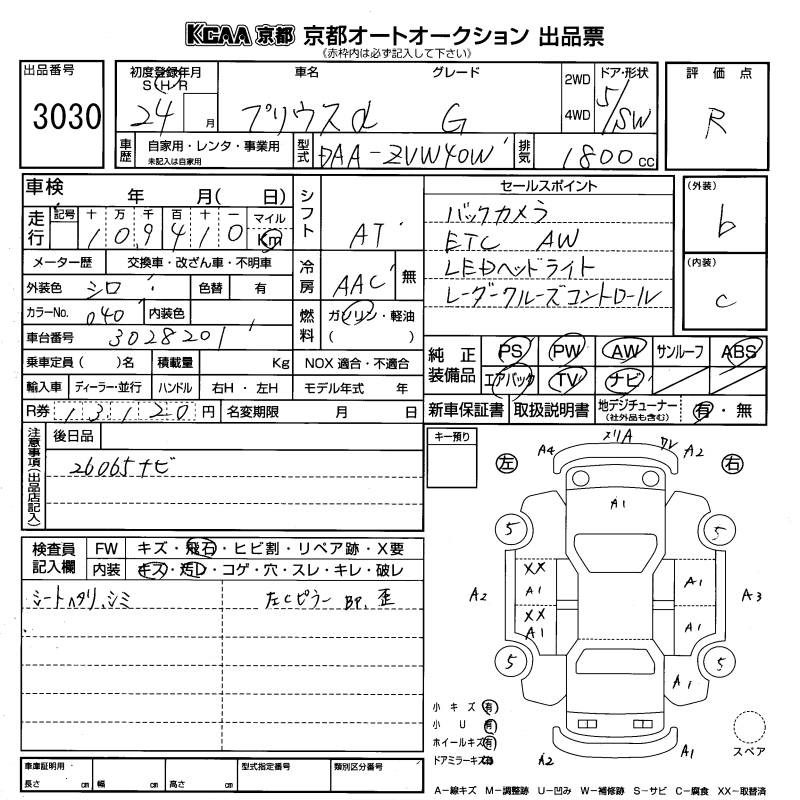 KCAA 京都 京都オートオークション 出品票
(赤枠内は必ず記入して下さい)
出品番号 3030
初度登録年月 S・H・R 24 月
車名 プリウスα グレード G
2WD 4WD
ドア・形状 5/SW
評価点 R
車歴 自家用・レンタ・事業用 未記入は自家用
型式 DAA-ZVW40W
排気 1800 cc
車検 年 月( 日)
走行 記号 十 万 千 百 十 一 マイル Km
1 0 9 4 1 0
メーター歴 交換車・改ざん車・不明車
外装色 シロ 色替 有
カラーNo. 040 内装色
車台番号 3028201
シフト AT
冷房 AAC 無
燃料 ガソリン・軽油 ( )
乗車定員( )名 積載量 Kg NOX 適合・不適合
輸入車 ディーラー・並行 ハンドル 右H・左H モデル年式 年
R券 13120 円 名変期限 月 日
セールスポイント
バックカメラ
ETC AW
LEDヘッドライト
レーダークルーズコントロール
(外装) b
(内装) c
純正装備品 PS PW AW サンルーフ ABS
エアバック TV ナビ
新車保証書 取扱説明書 地デジチューナー (社外品も含む) 有・無
注意事項(出品店記入) 後日品
26065ナビ
検査員記入欄
FW キズ・飛石・ヒビ割・リペア跡・X要
内装 キズ・汚レ・コゲ・穴・スレ・キレ・破レ
シートヘタリ、シミ
左Cピラー BP、歪
キー預り
左 右
A4 A2
A1
5 5
XX A1 A1
A2 A3
XX A1 A1
5 5
A1
A2 A1
小キズ 有
小U 有
ホイールキズ 有
ドアミラーキズ
スペア
A-線キズ M-調整跡 U-凹み W-補修跡 S-サビ C-腐食 XX-取替済
車庫証明用 長さ cm 幅 cm 高さ cm
型式指定番号 類別区分番号